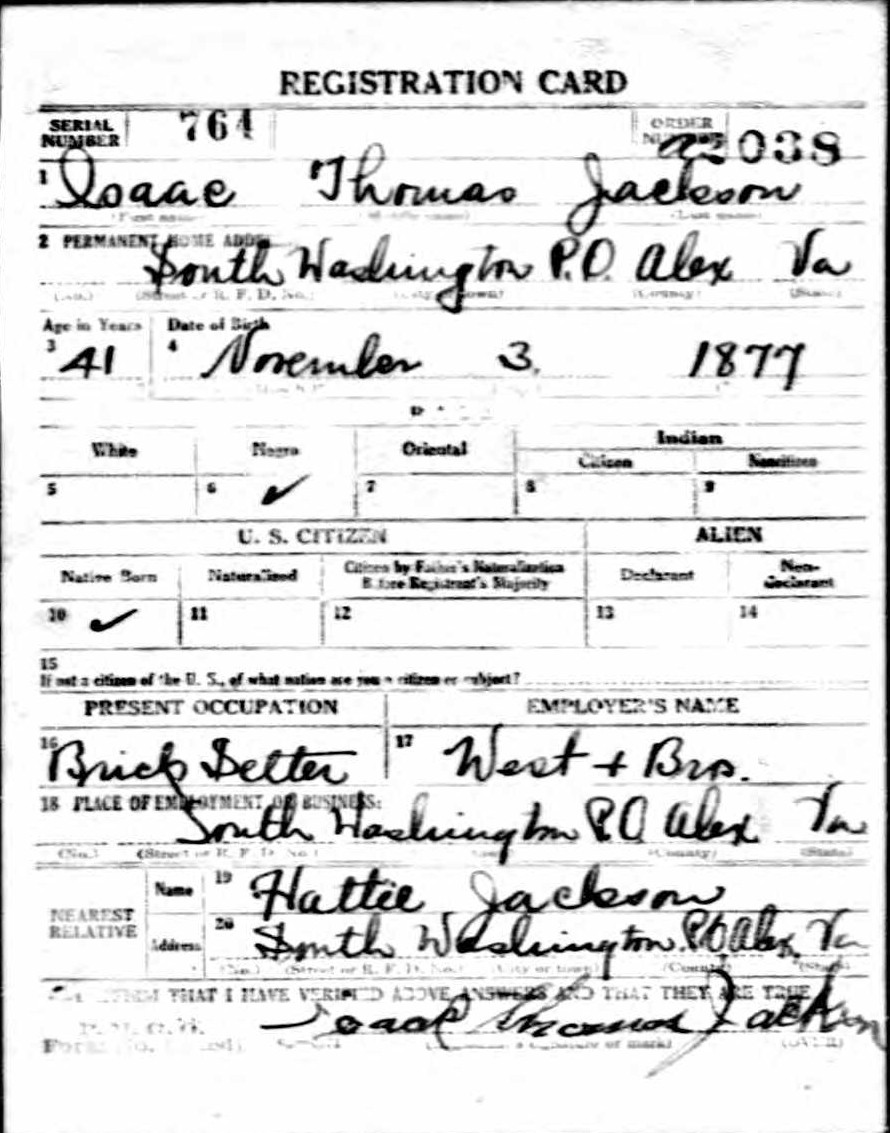 REGISTRATION CARD
SERIAL NUMBER 764 ORDER NUMBER A2038
1 Isaac Thomas Jackson
(First name) (Middle name) (Last name)
2 PERMANENT HOME ADDRESS
South Washington P.O. Alex Va
(No.) (Street or R. F. D. No.) (City or town) (County) (State)
Age in Years Date of Birth
3 41 4 November 3. 1877
White Negro Oriental Indian
Citizen Noncitizen
5 6 ✓ 7 8 9
U. S. CITIZEN ALIEN
Native Born Naturalized Citizen by Father's Naturalization Before Registrant's Majority Declarant Non-declarant
10 ✓ 11 12 13 14
15
If not a citizen of the U. S., of what nation are you a citizen or subject?
PRESENT OCCUPATION EMPLOYER'S NAME
16 Brick Setter 17 West + Bros.
18 PLACE OF EMPLOYMENT OR BUSINESS:
South Washington P.O. Alex Va
(No.) (Street or R. F. D. No.) (County) (State)
NEAREST RELATIVE Name 19 Hattie Jackson
Address 20 South Washington. P.O. Alex, Va
(No.) (Street or R. F. D. No.) (City or town) (County) (State)
AFFIRM THAT I HAVE VERIFIED ABOVE ANSWERS AND THAT THEY ARE TRUE
P. M. G. O.
Form No. 1 (Red) Isaac Thomas Jackson
(Registrant's signature or mark) (OVER)